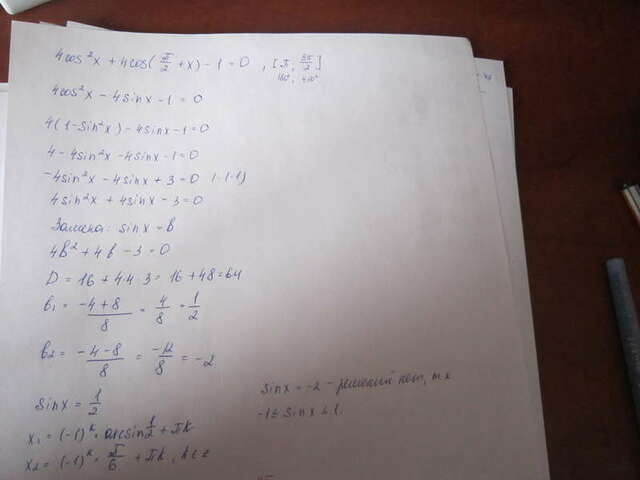 4cos²x + 4cos(π/2 + x) - 1 = 0 , [π; 5π/2]
180° ; 450°
4cos²x - 4sinx - 1 = 0
4(1 - sin²x) - 4sinx - 1 = 0
4 - 4sin²x - 4sinx - 1 = 0
-4sin²x - 4sinx + 3 = 0 | · (-1)
4sin²x + 4sinx - 3 = 0
Замена: sinx = b
4b² + 4b - 3 = 0
D = 16 + 4·4·3 = 16 + 48 = 64
b₁ = (-4 + 8)/8 = 4/8 = 1/2
b₂ = (-4 - 8)/8 = -12/8 = -2
sinx = -2 - решений нет, т.к
-1 ≤ sinx ≤ 1.
sinx = 1/2
x₁ = (-1)ᵏ · arcsin 1/2 + πk
x₂ = (-1)ᵏ · π/6 + πk, k ∈ z